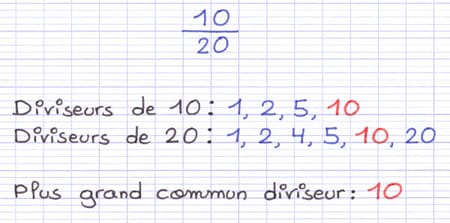 10
20
Diviseurs de 10 : 1, 2, 5, 10
Diviseurs de 20 : 1, 2, 4, 5, 10, 20
Plus grand commun diviseur : 10